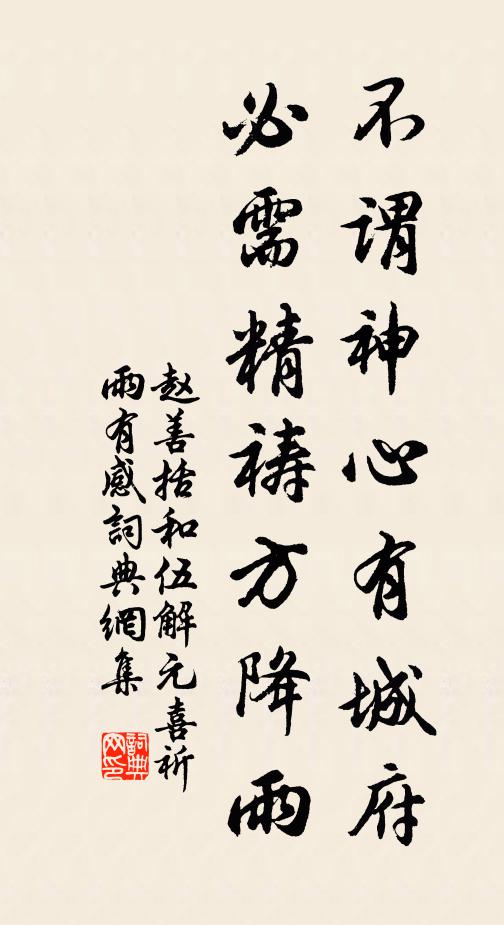 不谓神心有城府
必需精祷方降雨
赵善括和伍解元喜祈
雨有感詞典網集
詞典
网印